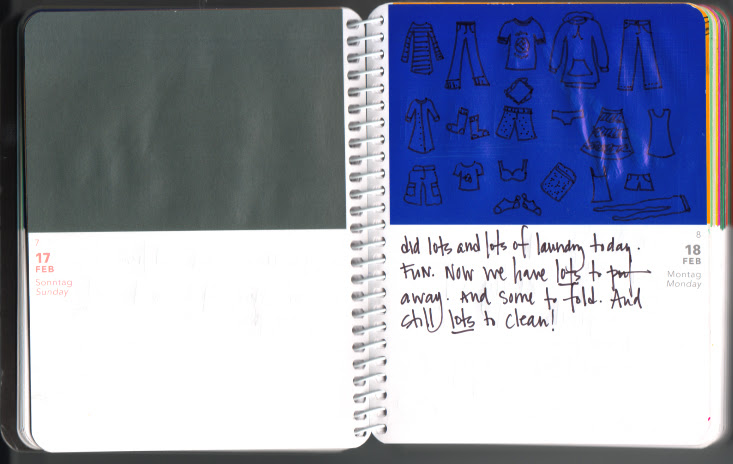 7
17
FEB
Sonntag
Sunday
8
18
FEB
Montag
Monday
did lots and lots of laundry today.
Fun. Now we have lots to put
away. And some to fold. And
still lots to clean!